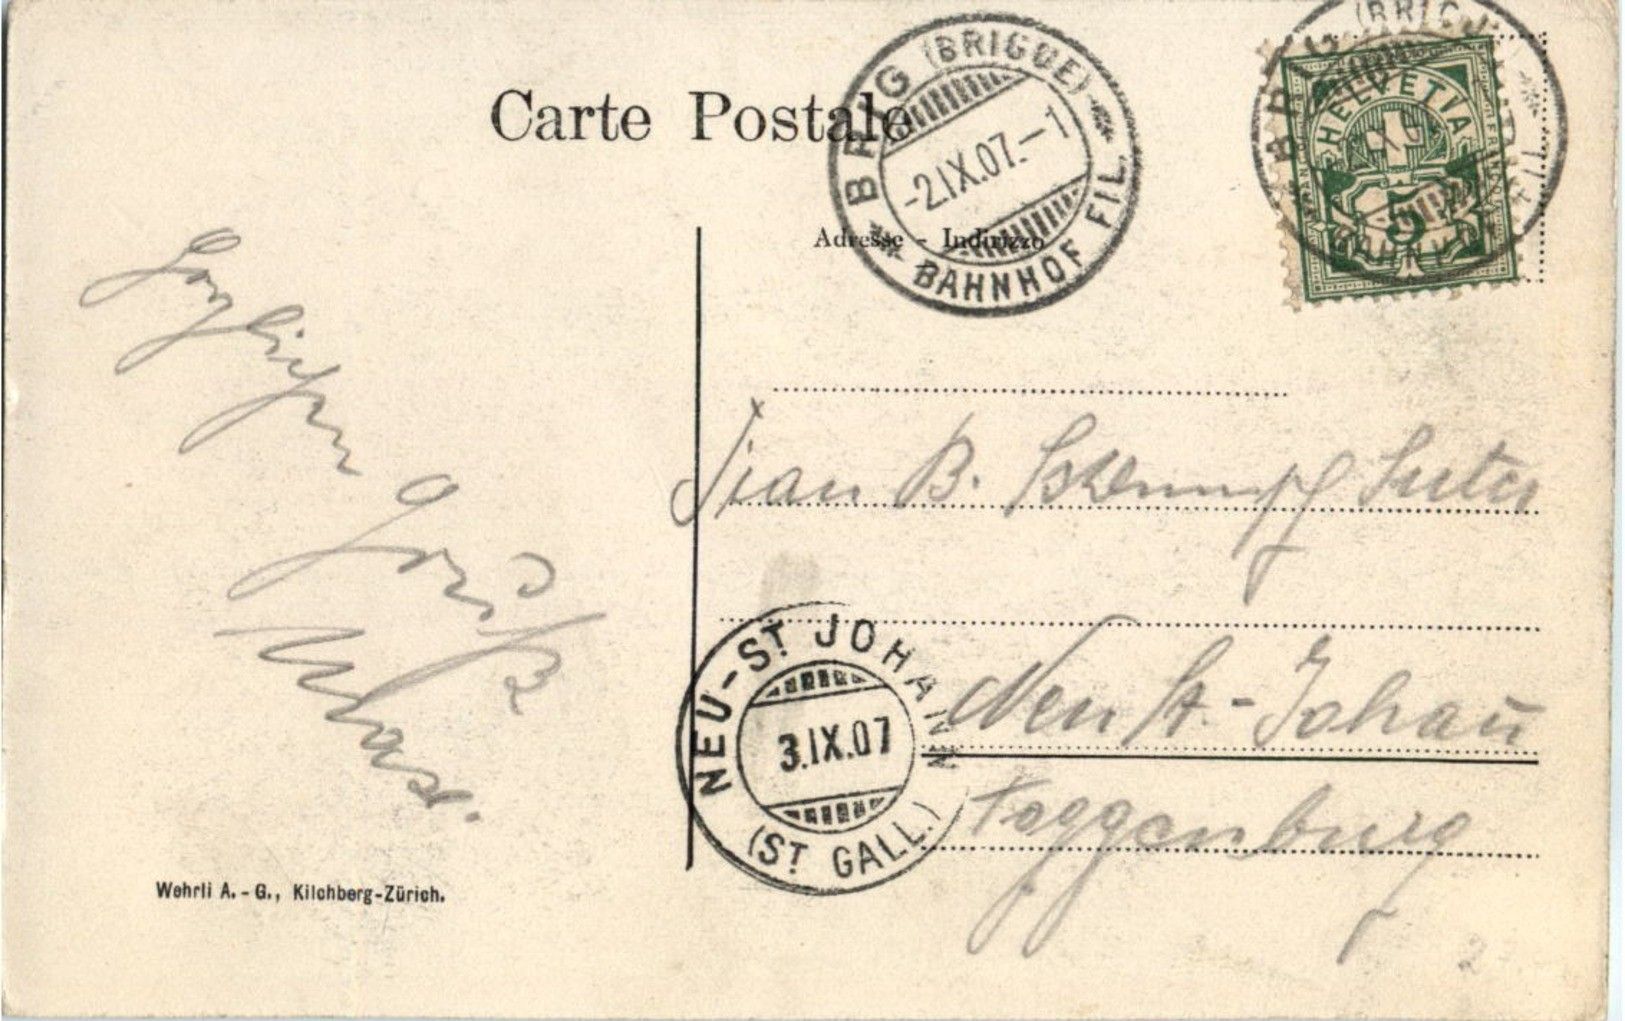 Carte Postale
BRIG (BRIGUE)
-2.IX.07.-1
BAHNHOF FIL.
BRIG (BRIGUE)
BAHNHOF FIL.
HELVETIA
FRANCO
FRANCO
5
Adresse - Indirizzo
Herzlichen
Gruß
Frau B. Suter
Neu St.-Johañ
Toggenburg
NEU-ST. JOHANN
3.IX.07
(ST. GALL.)
Wehrli A.-G., Kilchberg-Zürich.
2